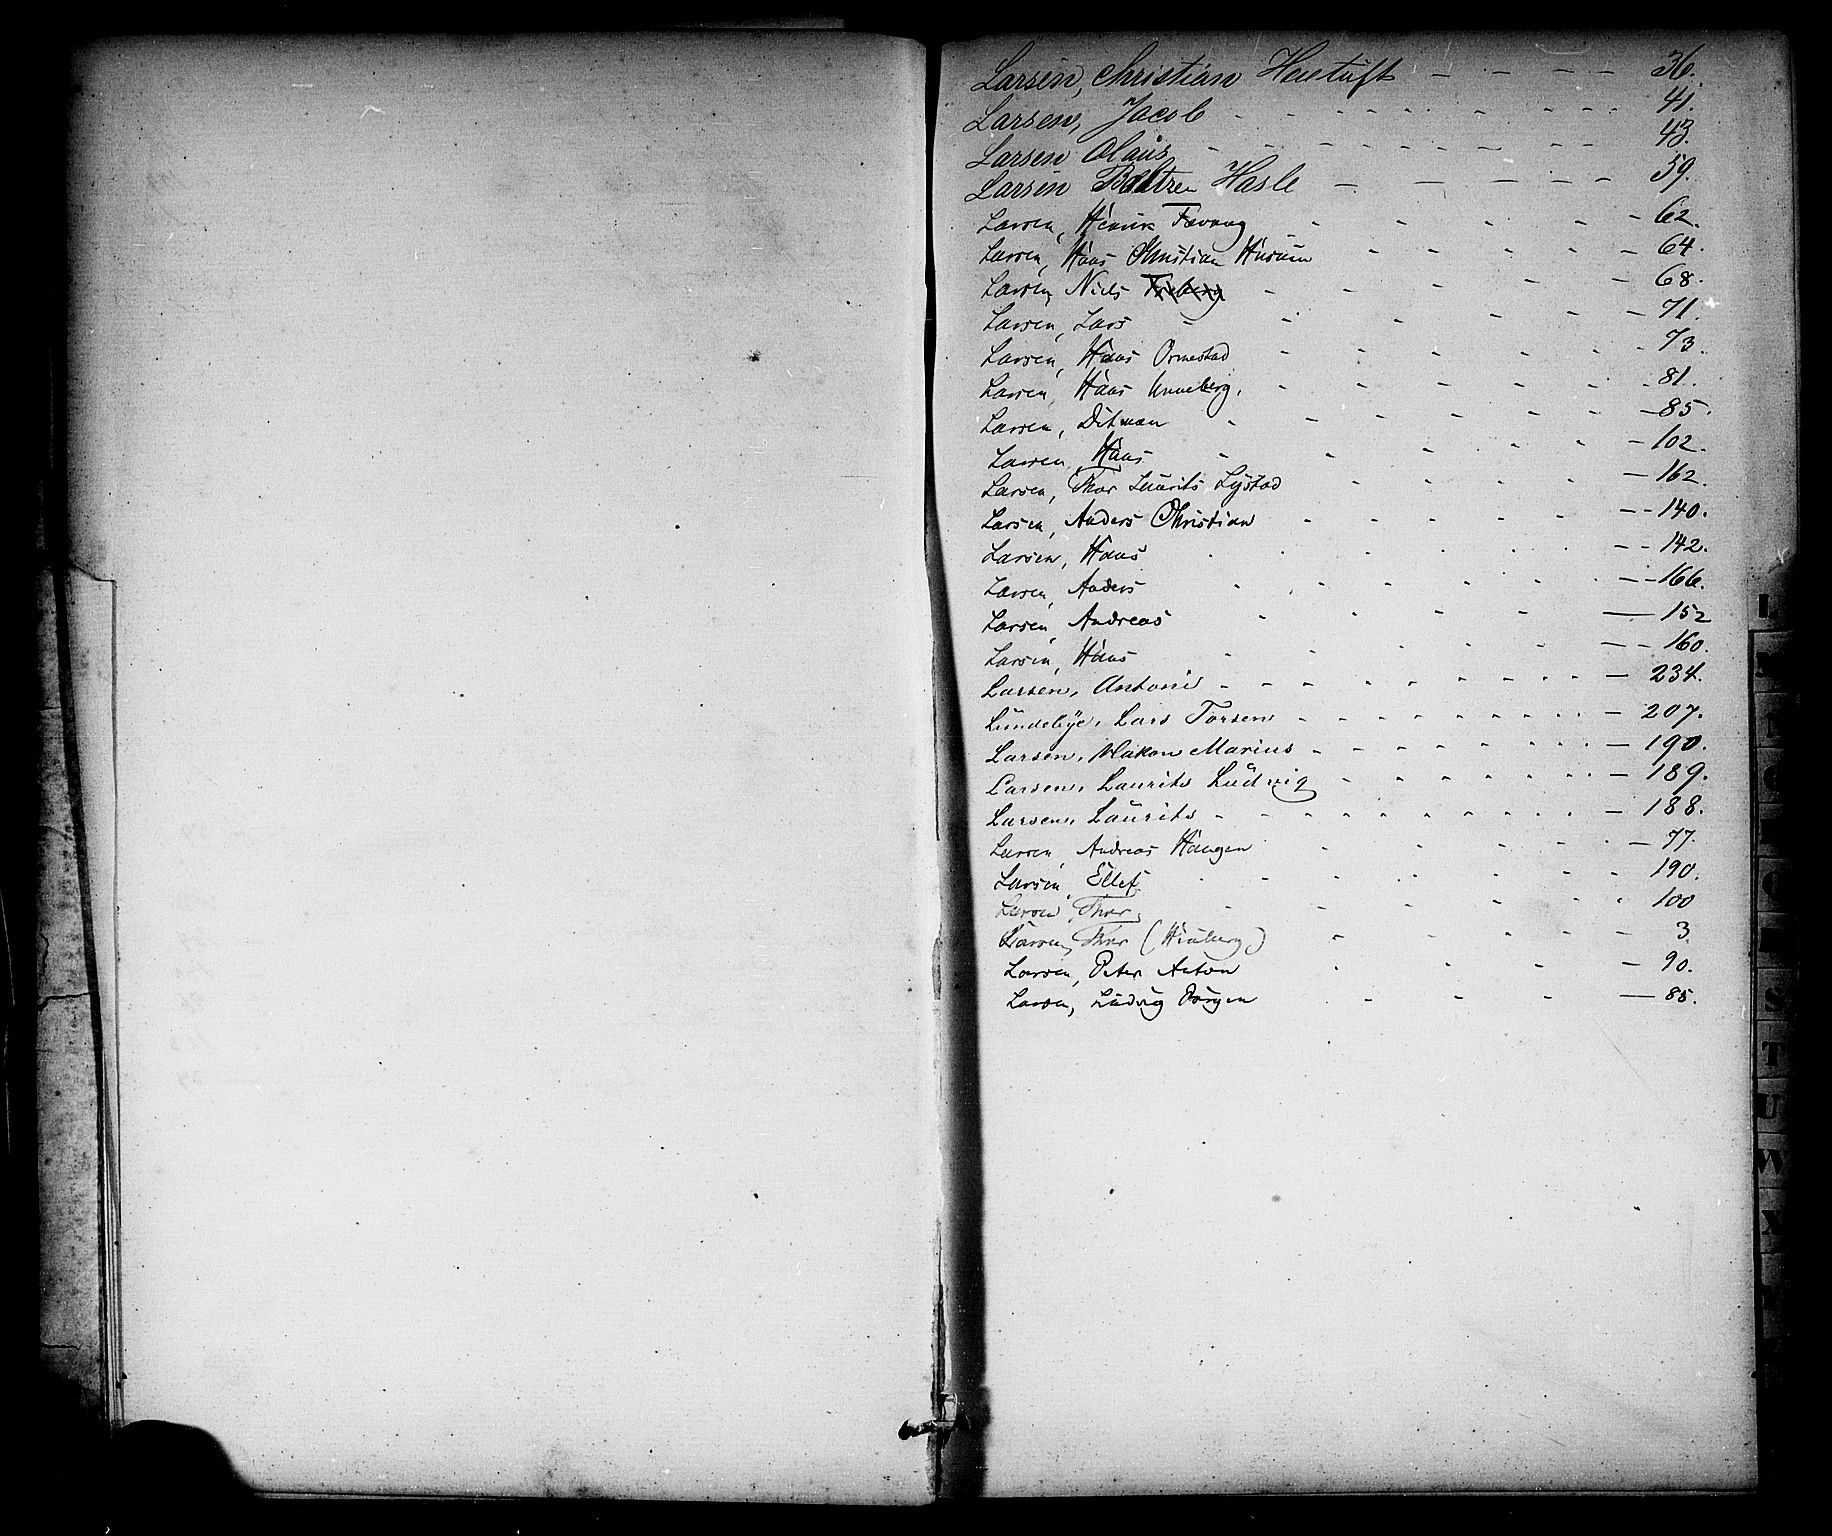 Larsen, Christian Hentuft - - - - 36.
Larsen, Jacob - - - - - - - - 41.
Larsen Olaüs - - - - - - - - 43.
Larsen Hasle - - - - - 59.
Larsen, Henrik - - - - - 62.
Larsen, Hans Christian Husum - - - - 64.
Larsen, Niels - - - - - 68.
Larsen, Lars - - - - - 71.
Larsen, Hans Ormestad - - - - - 73.
Larsen, Hans Unneberg. - - - - - 81.
Larsen, Ditman - - - - - 85.
Larsen, Hans - - - - - 102.
Larsen, Thor Laurits Lystad - - - - 162.
Larsen, Anders Christian - - - - - 140.
Larsen, Hans - - - - - 142.
Larsen, Anders - - - - - 166.
Larsen, Andreas - - - - - 152
Larsen, Hans - - - - - 160.
Larsen, Antoni - - - - - - - - 234.
Lündebye, Lars Torsen - - - - - - - 207.
Larsen, Hakon Marius - - - - - - - 190.
Larsen, Laurits Lüdvig - - - - - - - 189.
Larsen, Laürits - - - - - - - - 188.
Larsen, Andreas Haugen - - - - - 77.
Larsen, Ellef - - - - - 190.
Larsen, Thor, - - - - - 100
Larsen, Thor (Hinberg) - - - - 3.
Larsen, Peter Anton - - - - 90.
Larsen, Lüdvig Jörgen - - - - 85.
L
M
N
O
P
Q
R
S
T
U
W
X